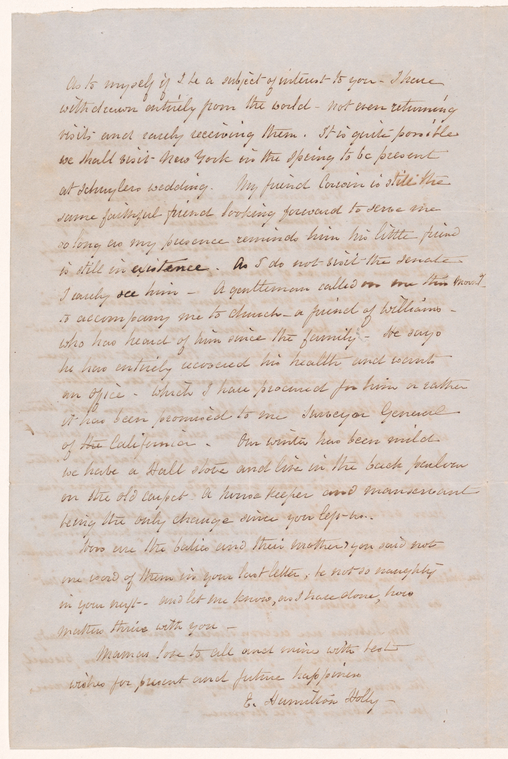 As to myself if I be a subject of interest to you - I have
withdrawn entirely from the world - not even returning
visits and rarely receiving them. It is quite possible
we shall visit New York in the Spring to be present
at Schuylers wedding. My friend Corwin is still the
same faithful friend looking forward to serve me
so long as my presence reminds him his little friend
is still in existence. As I do not visit the Senate
I rarely see him - A gentleman called on me this morng
to accompany me to church - a friend of Williams -
who has heard of him since the family - he says
he has entirely recovered his health and wants
an office - which I have procured for him or rather
it has been promised to me Surveyor General
of the California - Our winter has been mild
we have a Hall stove and live in the back parlour
on the old carpet. A housekeeper and manservant
being the only change since you left us.
How are the babies and their mother, you said not
one word of them in your last letter, be not so naughty
in your next - and let me know, as I have done, how
matters thrive with you -
Mamas love to all and mine with best
wishes for present and future happiness
E. Hamilton Holly -